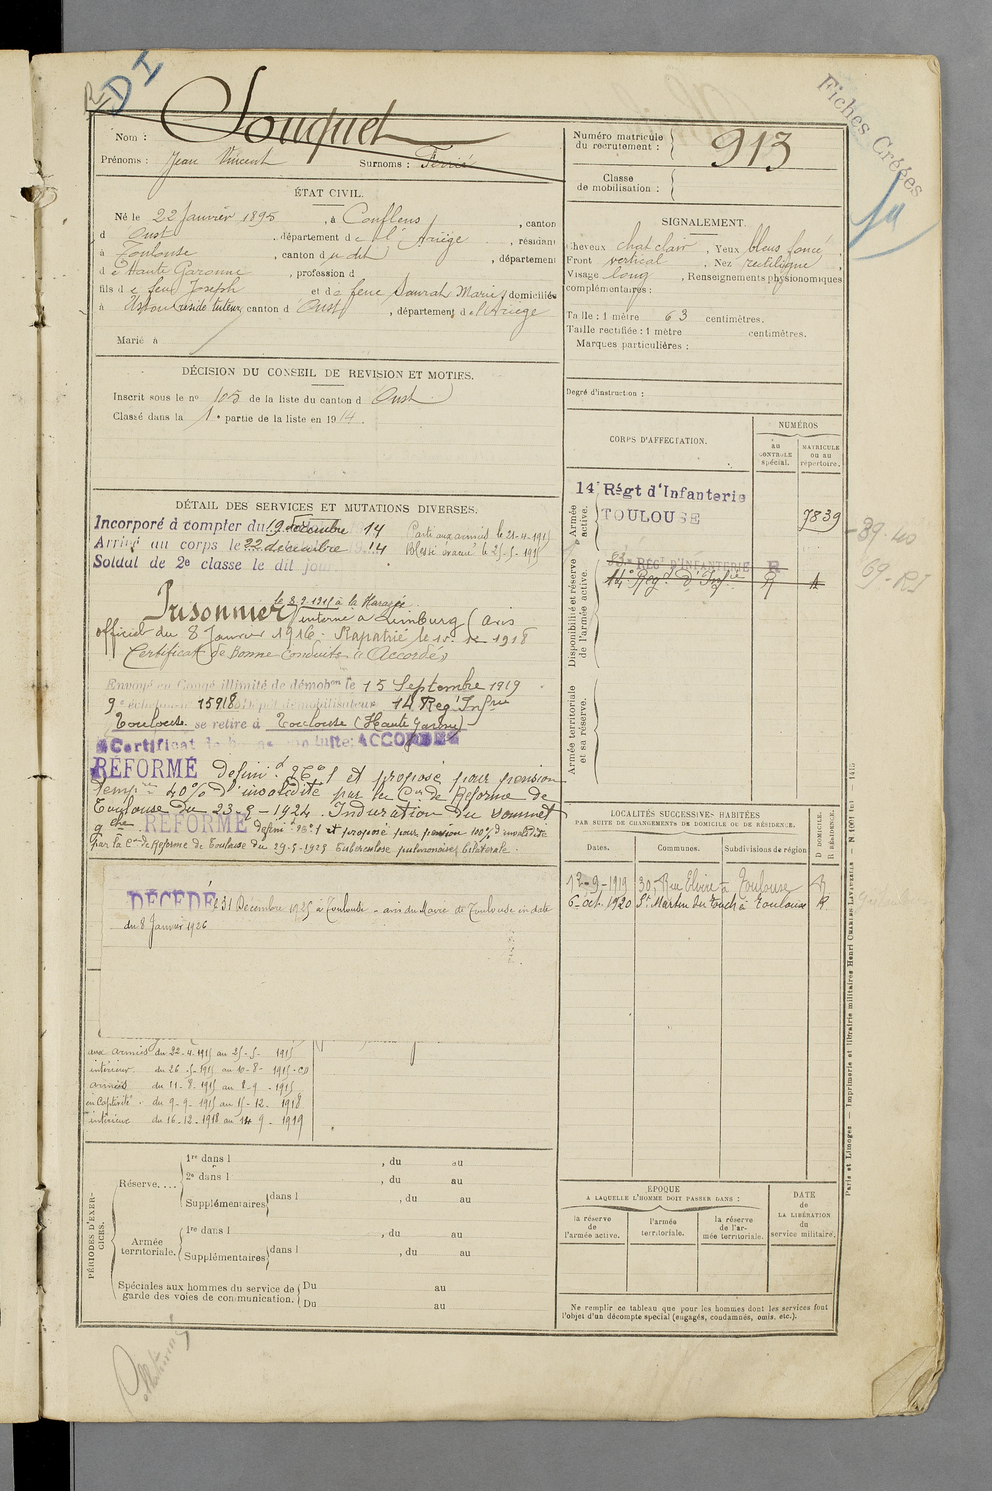 R DI
Fiches Créées
Nom : Souquet
Prénoms : Jean Vincent Surnoms : Ferrié
Numéro matricule du recrutement : 913
Classe de mobilisation :
ÉTAT CIVIL.
Né le 22 Janvier 1895, à Conflens, canton
d'Oust, département de l'Ariège, résidant
à Toulouse, canton du dit, département
de Haute Garonne, profession d
fils de feu Joseph et de feue Sourrah Marie, domiciliés
à réside tuteur canton d'Oust, département de l'Ariège
Marié à
SIGNALEMENT.
Cheveux chat clair, Yeux bleus foncé
Front vertical, Nez rectiligne,
Visage long, Renseignements physionomiques
complémentaires :
Taille : 1 mètre 63 centimètres.
Taille rectifiée : 1 mètre centimètres.
Marques particulières :
Degré d'instruction :
DÉCISION DU CONSEIL DE REVISION ET MOTIFS.
Inscrit sous le no 105 de la liste du canton d'Oust
Classé dans la 1e partie de la liste en 1914.
CORPS D'AFFECTATION.
NUMÉROS
au CONTROLE spécial.
MATRICULE ou au répertoire.
Armée active.
14e Régt d'Infanterie
TOULOUSE
7839
Disponibilité et réserve de l'armée active.
RÉGT D'INFANTERIE R
14e Régt d'Infie R
Armée territoriale et sa réserve.
39-40
69-RI
DÉTAIL DES SERVICES ET MUTATIONS DIVERSES.
Incorporé à compter du 19 décembre 1914
Arrivé au corps le 22 décembre 1914
Soldat de 2e classe le dit jour.
Parti aux armées le 21-4-1915
Blessé évacué le 25-5-1915
Prisonnier le 8.9.1915 à la Harazée
interné à Limburg (avis
officiel du 8 Janvier 1916. Rapatrié le 15 Xe 1918
Certificat de Bonne Conduite "Accordé"
Envoyé en Congé illimité de démobon le 15 Septembre 1919
9e échelon no 15918 Dépôt démobilisateur 14 Reg Infrie
Toulouse se retire à Toulouse (Haute Garonne)
Certificat de bonne conduite: ACCORDÉ
RÉFORMÉ défini. et proposé pour pension
tempre 40% d'invalidité par la Con de Réforme de
Toulouse du 23-9-1924. Induration du sommet
gche RÉFORMÉ défini. et proposé pour pension 100% d'invalidité
par la Con de Réforme de Toulouse du 29-5-1925 Tuberculose pulmonaire bilatérale.
DÉCÉDÉ le 31 Décembre 1925 à Toulouse - avis du Maire de Toulouse en date
du 8 Janvier 1926
aux armées du 22-4-1915 au 25-5-1915
intérieur du 26-5-1915 au 10-8-1915
armées du 11-8-1915 au 8-9-1915
en Captivité du 9-9-1915 au 15-12-1918
intérieur du 16-12-1918 au 14 9-1919
LOCALITÉS SUCCESSIVES HABITÉES
PAR SUITE DE CHANGEMENTS DE DOMICILE OU DE RÉSIDENCE.
Dates. Communes. Subdivisions de région D DOMICILE. R RÉSIDENCE.
12-9-1919 30, Rue Elvire à Toulouse R
6 oct. 1920 St Martin du Touch à Toulouse R
PÉRIODES D'EXERCICES.
Réserve....
1re dans l , du au
2e dans l , du au
Supplémentaires dans l , du au
Armée territoriale.
1re dans l , du au
Supplémentaires dans l , du au
Spéciales aux hommes du service de garde des voies de communication.
Du au
Du au
ÉPOQUE
A LAQUELLE L'HOMME DOIT PASSER DANS :
la réserve de l'armée active.
l'armée territoriale.
la réserve de l'armée territoriale.
DATE de LA LIBÉRATION du service militaire.
Ne remplir ce tableau que pour les hommes dont les services font
l'objet d'un décompte spécial (engagés, condamnés, omis, etc.).
Paris et Limoges. — Imprimerie et librairie militaires Henri CHARLES-LAVAUZELLE
Collationné